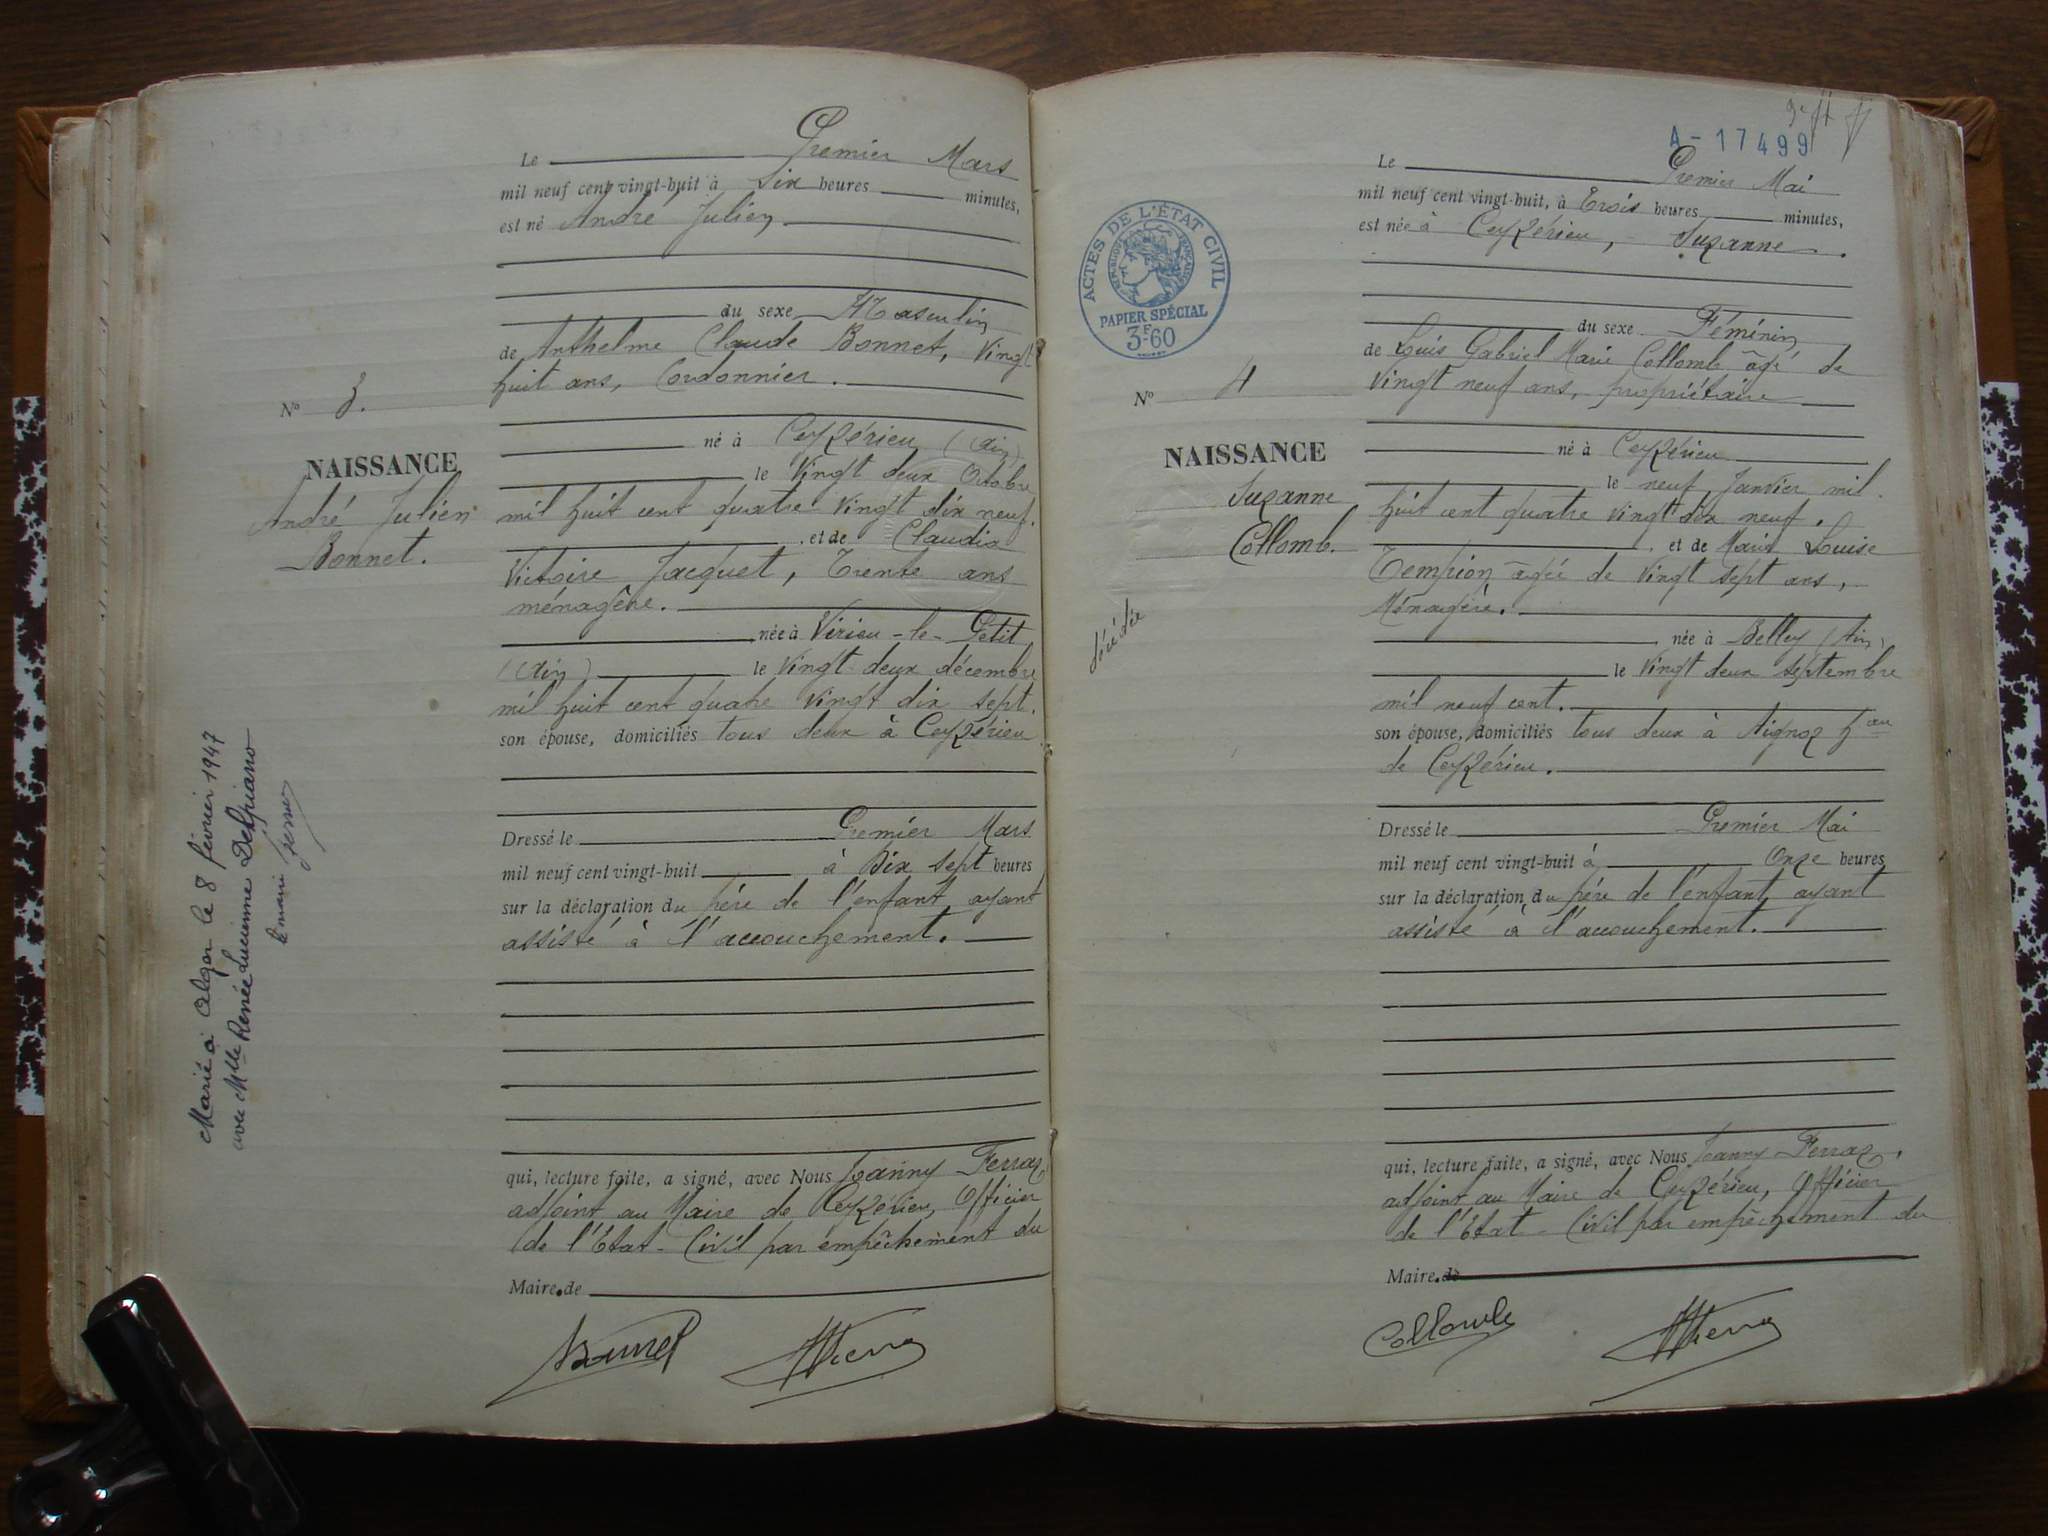 Le Premier Mars
mil neuf cent vingt-huit à Six heures minutes,
est né André Julien
du sexe Masculin
de Anthelme Claude Bonnet, Vingt
huit ans, Cordonnier.
né à Ceyzérieu (Ain)
le Vingt deux Octobre
mil huit cent quatre Vingt dix neuf.
et de Claudia
Victoire Jacquet, Trente ans
ménagère.
née à Virieu-le-Petit
(Ain) le Vingt deux décembre
mil huit cent quatre Vingt dix sept.
son épouse, domiciliés tous deux à Ceyzérieu
Dressé le Premier Mars
mil neuf cent vingt-huit à Dix sept heures
sur la déclaration du père de l'enfant ayant
assisté à l'accouchement.
qui, lecture faite, a signé, avec Nous Joanny Ferraz,
adjoint au Maire de Ceyzérieu, Officier
de l'Etat-Civil par empêchement du
Maire. de
Bonnet
Nº 3.
NAISSANCE
André Julien
Bonnet.
Marié à Alger le 8 février 1947
avec Mlle Renée Lucienne Delpiano
Le maire
A-17499
Le Premier Mai
mil neuf cent vingt-huit, à Trois heures minutes,
est née à Ceyzérieu, Suzanne.
du sexe Féminin
de Louis Gabriel Marie Collomb âgé de
Vingt neuf ans, propriétaire
né à Ceyzérieu
le neuf Janvier mil
huit cent quatre Vingt dix neuf.
et de Marie Louise
Tempion âgée de Vingt sept ans,
Ménagère.
née à Belley (Ain)
le Vingt deux septembre
mil neuf cent.
son épouse, domiciliés tous deux à Aignoz hau
de Ceyzérieu.
Dressé le Premier Mai
mil neuf cent vingt-huit à Onze heures
sur la déclaration du père de l'enfant ayant
assisté à l'accouchement.
qui, lecture faite, a signé, avec Nous Joanny Ferraz,
adjoint au Maire de Ceyzérieu, Officier
de l'Etat-Civil par empêchement du
Maire. de
Collomb
ACTES DE L'ÉTAT CIVIL
RÉPUBLIQUE FRANÇAISE
PAPIER SPÉCIAL
3F60
Nº 4
NAISSANCE
Suzanne
Collomb.
décédée